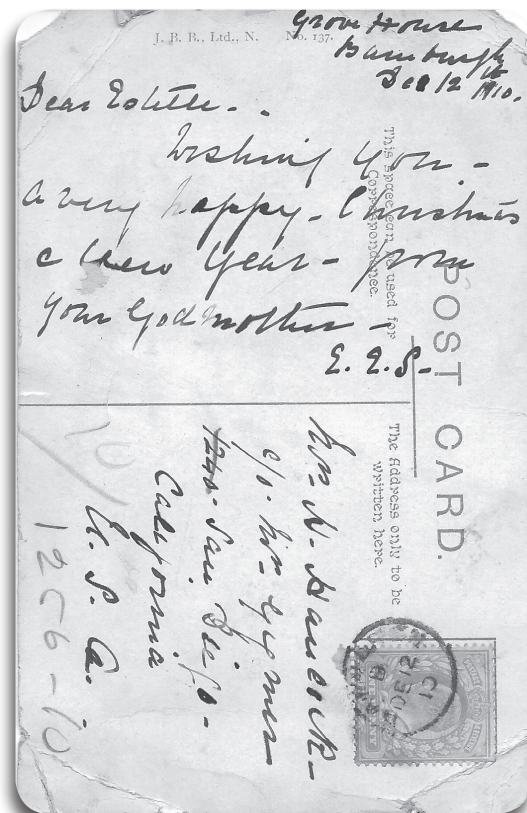 J. B. B., Ltd., N. No. 137.
Grove House
Bamburgh
Dec 12th 1910.
Dear Estelle -
Wishing you -
a very happy - Christmas
& New Year - from
your Godmother -
E. E. S -
This space can be used for
Correspondence.
POST CARD.
The Address only to be
written here.
Mrs H. Hancock -
c/o Mrs
San Diego -
California
U. S. A.
1256-10
10
DE 12
10